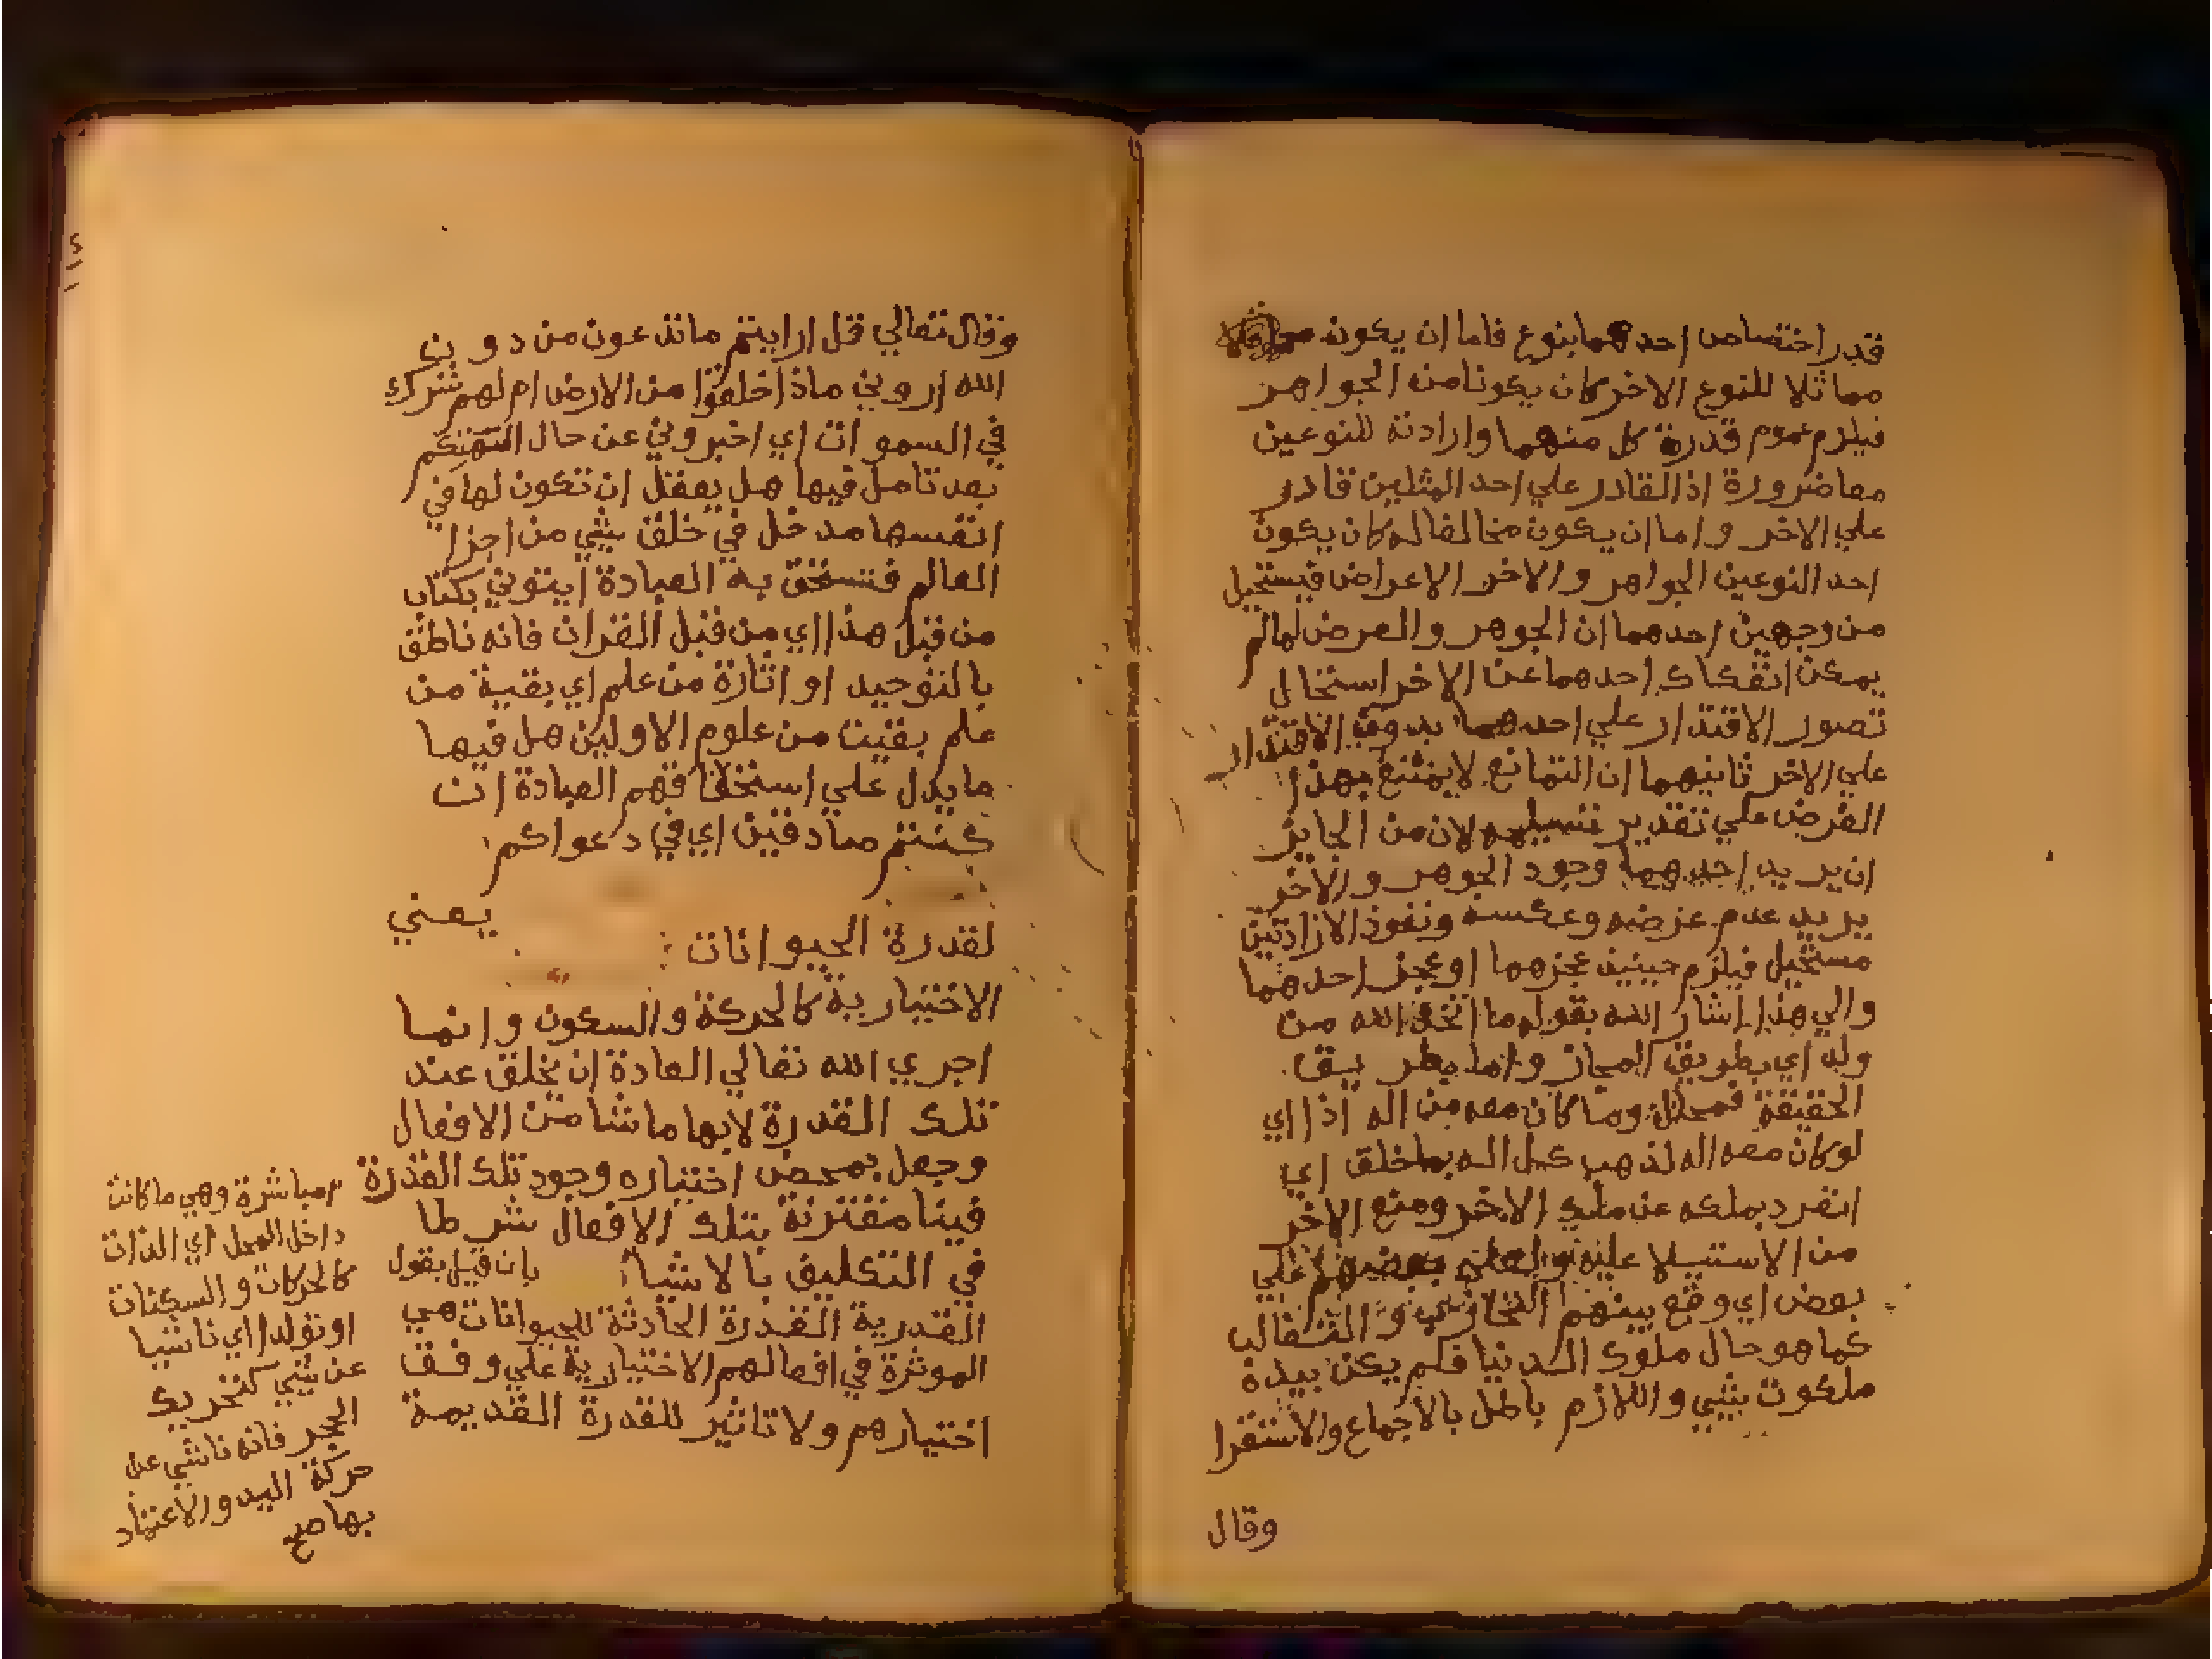 قدر اختصاص احدهما بنوع فاما ان يكون
مماثلا للنوع الاخر كان يكونا من الجواهر
فيلزم عموم قدرة كل منهما وارادته للنوعين
معا ضرورة اذ القادر علي احد المثلين قادر
علي الاخر واما ان يكون مخالفا له كان يكون
احد النوعين الجواهر والاخر الاعراض فيستحيل
من وجهين احدهما ان الجوهر والعرض لما لم
يمكن انفكاك احدهما عن الاخر استحال
تصور الاقتدار علي احدهما بدون الاقتدار
علي الاخر ثانيهما ان التمانع لا يمتنع بهذا
الفرض علي تقدير تسليمه لان من الجايز
ان يريد احدهما وجود الجوهر والاخر
يريد عدم عرضه وعكسه ونفوذ الارادتين
مستحيل فيلزم حينيذ عجزهما او عجز احدهما
والي هذا اشار الله بقوله ما اتخذ الله من
ولد اي بطريق المجاز واما بطريق
الحقيقة فمحال وما كان معه من اله اذا اي
لو كان معه اله لذهب كل اله بما خلق اي
انفرد بملكه عن ملك الاخر ومنع الاخر
من الاستيلا عليه ولعلي بعضهم علي
بعض اي وقع بينهم التحارب والتغالب
كما هو حال ملوك الدنيا فلم يكن بيده
ملكوت شي واللازم باطل بالاجماع والاستقرا
وقال
١١٤
وقال تعالي قل ارايتم ما تدعون من دون
الله اروني ماذا خلقوا من الارض ام لهم شرك
في السموات اي اخبروني عن حال الهتكم
بعد تامل فيها هل يعقل ان تكون لها في
انفسها مدخل في خلق شي من اجزا
العالم فتستحق به العبادة ايتوني بكتاب
من قبل هذا اي من قبل القران فانه ناطق
بالتوحيد او اثارة من علم اي بقية من
علم بقيت من علوم الاولين هل فيها
ما يدل علي استحقاقهم العبادة ان
كنتم صادقين اي في دعواكم
يعني
لقدرة الحيوانات
الاختيارية كالحركة والسكون وانما
اجري الله تعالي العادة ان يخلق عند
تلك القدرة لا بها ما شا من الافعال
وجعل بمحض اختياره وجود تلك القدرة
فينا مقترنة بتلك الافعال شرطا
في التكليف بالاشيا بان قيل بقول
القدرية القدرة الحادثة للحيوانات هي
الموثرة في افعالهم الاختيارية علي وفق
اختيارهم ولا تاثير للقدرة القديمة
مباشرة وهي ما كانت
داخل المحل اي الذات
كالحركات والسكنات
او تولدا اي ناشيا
عن شي كتحريك
الحجر فانه ناشي عن
حركة اليد والاعتماد
بها صح